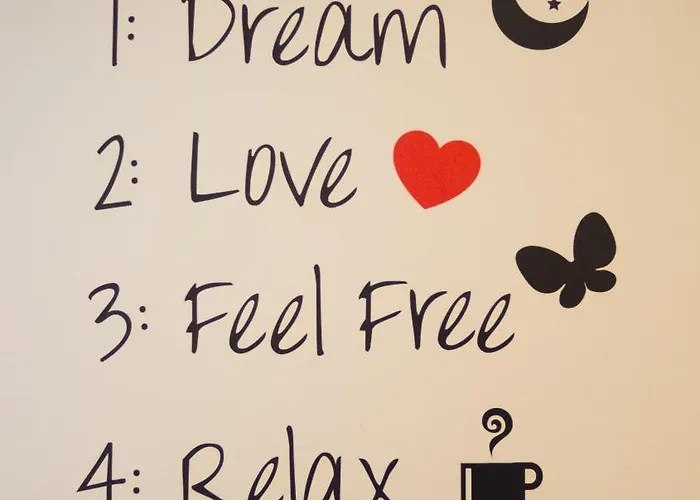 1: Dream
2: Love
3: Feel Free
4: Relax